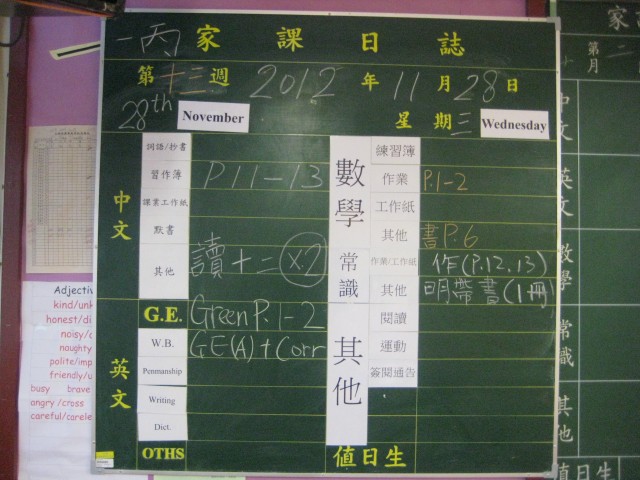 一丙 家課日誌
第十三週 2012年11月28日
28th November 星期三 Wednesday
中文
詞語/抄書
習作簿 P11-13
課業工作紙
默書
其他 讀十二(x2)
英文
G.E. Green P.1-2
W.B. GE(A)+Corr
Penmanship
Writing
Dict.
OTHS
數學
練習簿
作業 P.1-2
工作紙
其他 書P.6
常識
作業/工作紙 作(P.12,13)
其他 明帶書(1冊)
其他
閱讀
運動
簽閱通告
值日生
Adjectiv
kind/unk
honest/di
noisy/
naughty
polite/imp
friendly/u
busy brave
angry/cross
careful/carele
家
第 二
月
中文
英文
數學
常識
其他
值日生